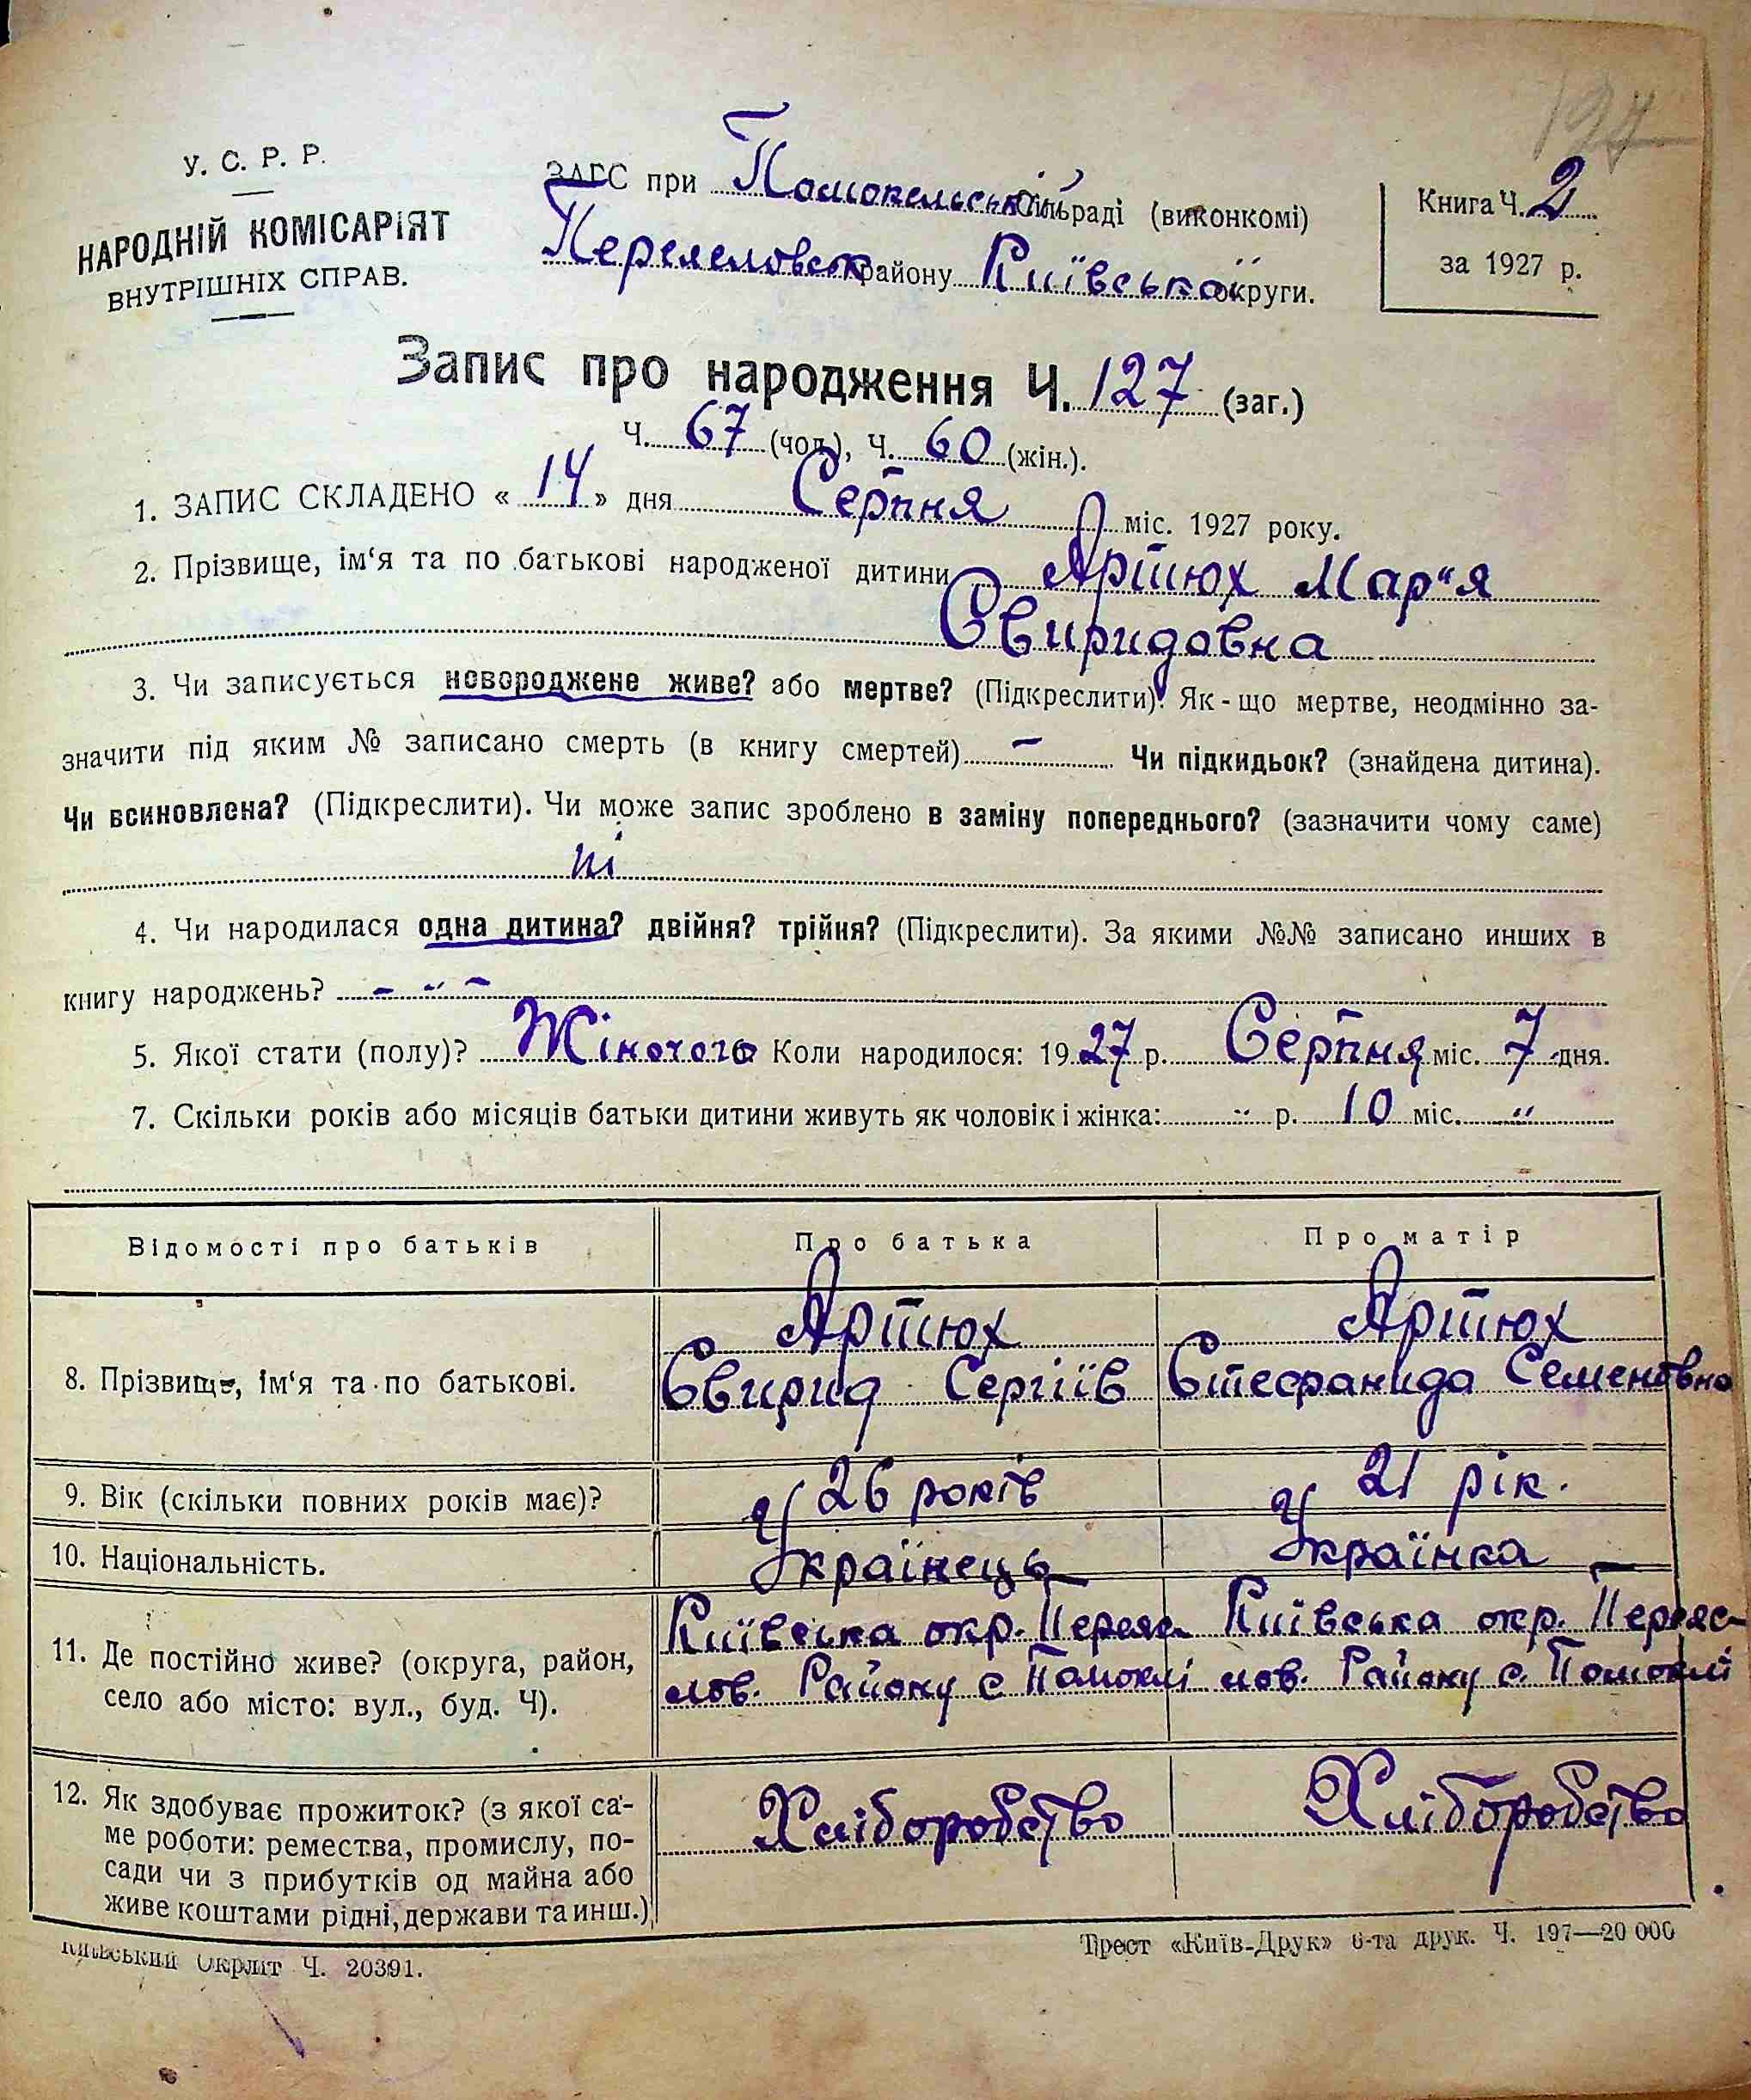 127
У. С. Р. Р.
НАРОДНІЙ КОМІСАРІЯТ
ВНУТРІШНІХ СПРАВ.
ЗАГС при Помокельській сільраді (виконкомі)
району Київської округи.
Книга Ч. 2
за 1927 р.
Запис про народження Ч. 127 (заг.)
Ч. 67 (чол.), Ч. 60 (жін.).
1. ЗАПИС СКЛАДЕНО « 14 » дня Серпня міс. 1927 року.
2. Прізвище, ім‘я та по батькові народженої дитини Артюх Мар"я
Свиридовна
3. Чи записується новороджене живе? або мертве? (Підкреслити). Як-що мертве, неодмінно за-
значити під яким № записано смерть (в книгу смертей) – Чи підкидьок? (знайдена дитина).
Чи всиновлена? (Підкреслити). Чи може запис зроблено в заміну попереднього? (зазначити чому саме)
ні
4. Чи народилася одна дитина? двійня? трійня? (Підкреслити). За якими №№ записано инших в
книгу народжень? – " –
5. Якої стати (полу)? Жіночого 6 Коли народилося: 1927 р. Серпня міс. 7 дня.
7. Скільки років або місяців батьки дитини живуть як чоловік і жінка: " р. 10 міс. "
Відомості про батьків Про батька Про матір
8. Прізвище, ім‘я та по батькові. Артюх Артюх
Свирид Сергіїв Стефанида Семеновна
9. Вік (скільки повних років має)? 26 років 21 рік.
10. Національність. Українець Українка
11. Де постійно живе? (округа, район, село або місто: вул., буд. Ч). Київська окр. Переяс- Київська окр. Переяс-
лов. Району с Помоклі лов. Району с. Помоклі
12. Як здобуває прожиток? (з якої са-
ме роботи: ремества, промислу, по- Хліборобство Хліборобство
сади чи з прибутків од майна або
живе коштами рідні, держави та инш.)
Київський Окрліт Ч. 20391.
Трест «Київ-Друк» 6-та друк. Ч. 197—20 000